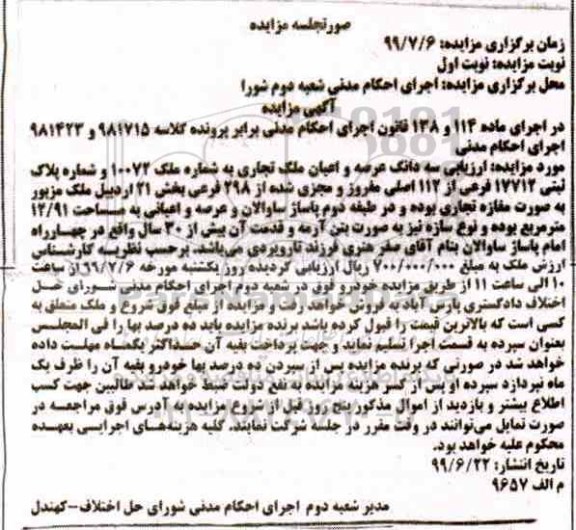 صورتجلسه مزایده
زمان برگزاری مزایده: ۹۹/۷/۶
نوبت مزایده: نوبت اول
محل برگزاری مزایده: اجرای احکام مدنی شعبه دوم شورا
آگهی مزایده
در اجرای ماده ۱۱۴ و ۱۳۸ قانون اجرای احکام مدنی برابر پرونده کلاسه ۹۸۱۷۱۵ و ۹۸۱۴۲۳
اجرای احکام مدنی
مورد مزایده: ارزیابی سه دانگ عرصه و اعیان ملک تجاری به شماره ملک ۱۰۰۷۲ و شماره پلاک
ثبتی ۱۷۷۱۲ فرعی از ۱۱۲ اصلی مفروز و مجزی شده از ۲۹۸ فرعی بخش ۲۱ اردبیل ملک مزبور
به صورت مغازه تجاری بوده و در طبقه دوم پاساژ ساوالان و عرصه و اعیانی به مساحت ۱۲/۹۱
مترمربع بوده و نوع سازه نیز به صورت بتن آرمه و قدمت آن بیش از ۲۰ سال واقع در چهارراه
امام پاساژ ساوالان بنام آقای صفر هنری فرزند تارویردی می‌باشد. برحسب نظریه کارشناسی
ارزش ملک به مبلغ ۷۰۰/۰۰۰/۰۰۰ ریال ارزیابی گردیده روز یکشنبه مورخه ۹۹/۷/۶ از ساعت
۱۰ الی ساعت ۱۱ از طریق مزایده خودرو فوق در شعبه دوم اجرای احکام مدنی شورای حل
اختلاف دادگستری پارس آباد به فروش خواهد رفت و مزایده از مبلغ فوق شروع و ملک متعلق به
کسی است که بالاترین قیمت را قبول کرده باشد برنده مزایده باید ده درصد بها را فی المجلس
بعنوان سپرده به قسمت اجرا تسلیم نماید و جهت پرداخت بقیه آن حداکثر یکماه مهلت داده
خواهد شد در صورتی که برنده مزایده پس از سپردن ده درصد بها خودرو بقیه آن را ظرف یک
ماه نپردازد سپرده او پس از کسر هزینه مزایده به نفع دولت ضبط خواهد شد طالبین جهت کسب
اطلاع بیشتر و بازدید از اموال مذکور پنج روز قبل از شروع مزایده به آدرس فوق مراجعه در
صورت تمایل می‌توانند در وقت مقرر در جلسه شرکت نمایند. کلیه هزینه‌های اجرایی بعهده
محکوم علیه خواهد بود.
تاریخ انتشار: ۹۹/۶/۲۲
م الف ۹۶۵۷
مدیر شعبه دوم اجرای احکام مدنی شورای حل اختلاف–کهندل